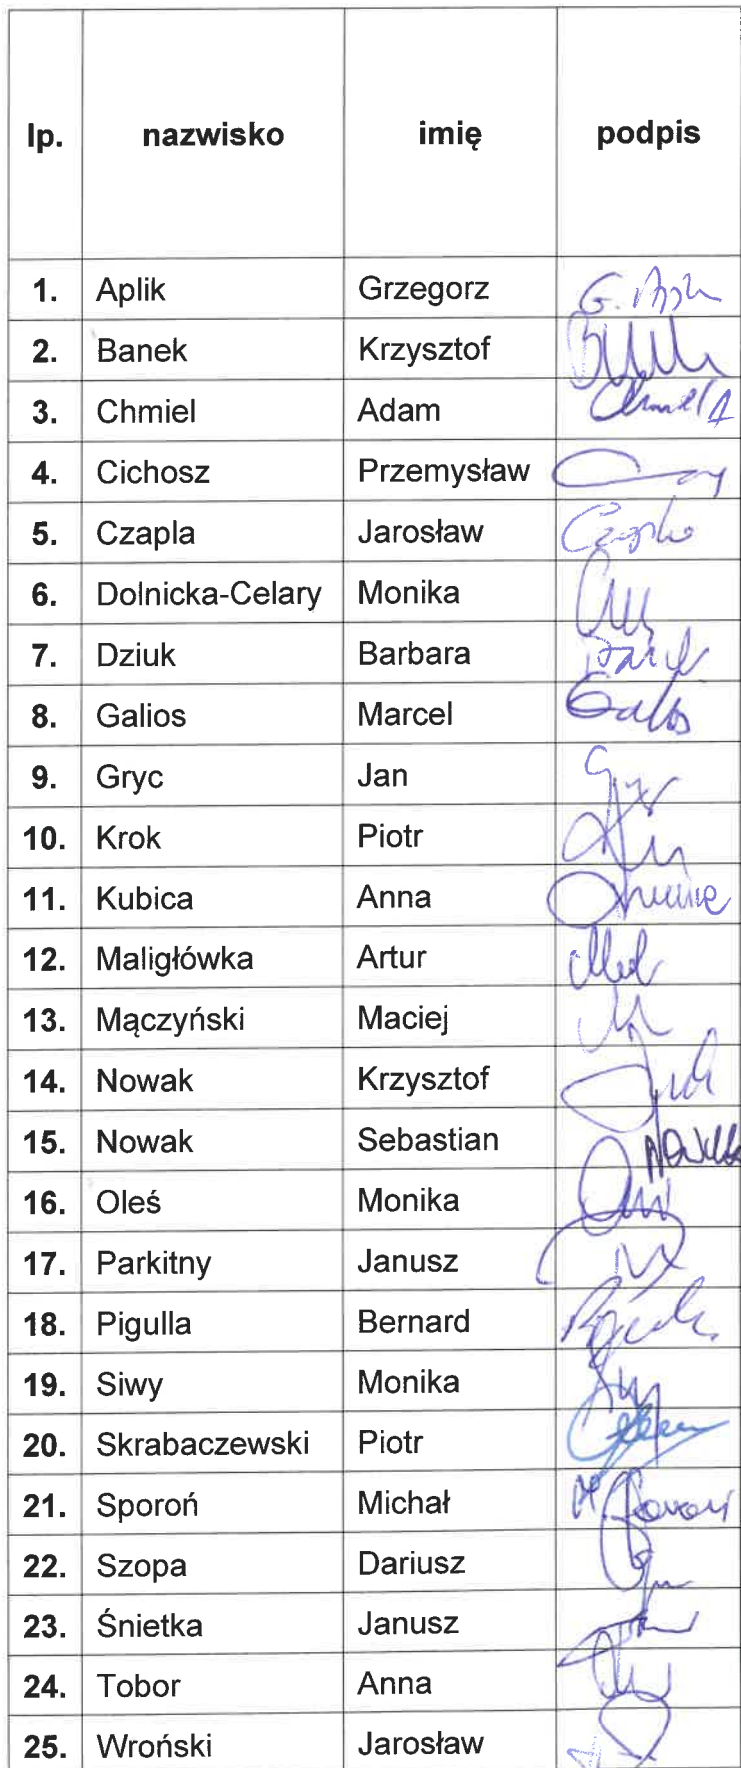 lp. nazwisko imię podpis
1. Aplik Grzegorz
2. Banek Krzysztof
3. Chmiel Adam Chmiel A
4. Cichosz Przemysław
5. Czapla Jarosław Czapla
6. Dolnicka-Celary Monika
7. Dziuk Barbara
8. Galios Marcel Galios
9. Gryc Jan
10. Krok Piotr
11. Kubica Anna
12. Maligłówka Artur
13. Mączyński Maciej
14. Nowak Krzysztof
15. Nowak Sebastian
16. Oleś Monika
17. Parkitny Janusz
18. Pigulla Bernard
19. Siwy Monika
20. Skrabaczewski Piotr
21. Sporoń Michał
22. Szopa Dariusz
23. Śnietka Janusz
24. Tobor Anna
25. Wroński Jarosław